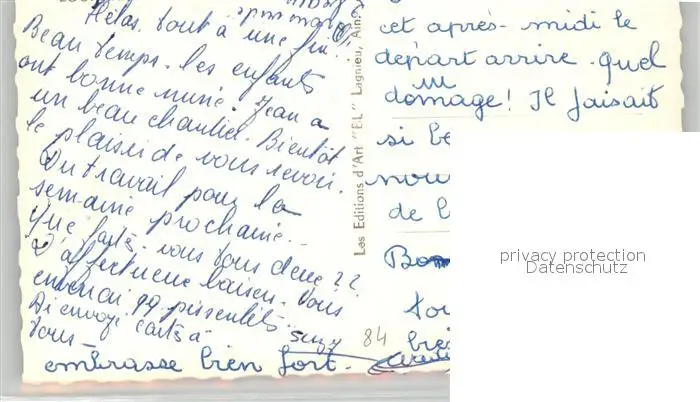 Hélas, tout à une fin!
Beau temps. les enfants
ont bonne mine. Jean a
un beau chantier. Bientôt
le plaisir de vous revoir.
Du travail pour la
semaine prochaine.
Que faites-vous tous deux ??
D'affectueux baisers. Vous
enverrai 99 pissenlits.
Ai envoyé cartes à
tous -
Suzy
embrasse bien fort.
Les Editions d'Art "EL" Lagnieu, Ain
84
cet après-midi le
départ arrive. quel
dommage! Il faisait
si be
nou
de l
Bon
tou
privacy protection
Datenschutz